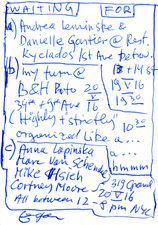 WAITING FOR
a) Andrea Leminske &
Danielle Gontier @ Rest.
Kyclados 1st Ave betw.
13 + 14 St
19 V 16
19 30
b) my turn @
B&H Photo 20 V 16
34th + 9th Ave
10 30
("Highly + strictly"
organized like a... a...
hmmm
c) Anna Lopinska
Marc Van Schende
Mike Hsich
Cortney Moore
319 Grand
20 V 16
All between 12 - 8 pm NYC